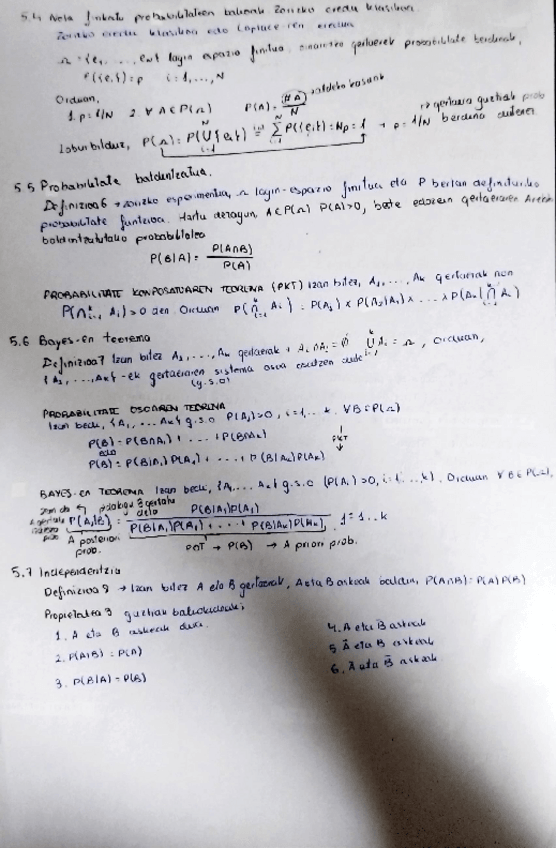 5.4 Nola finkatu probabilitateen balioak Zorizko eredu klasikoan
Zorizko eredu klasikoa edo Laplace-ren eredua
Ω = {e₁, ..., e_N} lagin espazio finitua, oinarrizko gertaerek probabilitate berdinak,
P({eᵢ}) = p i = 1, ..., N
Orduan,
1. p = 1/N 2. ∀ A ∈ P(Ω) P(A) = #A/N → aldeko kasuak
↳ gertaera guztiak prob berdina dutenez
Laburbilduz, P(Ω) = P(⋃ᵢ₌₁ᴺ {eᵢ}) = ∑ᵢ₌₁ᴺ P({eᵢ}) = Np = 1 → p = 1/N
5.5 Probabilitate baldintzatua.
Definizioa 6 → zorizko esperimentua, Ω lagin-espazio finitua eta P bertan definituriko
probabilitate funtzioa. Hartu dezagun, A ∈ P(Ω) P(A) > 0, beste edozein gertaeraren
baldintzatutako probabilitatea
P(B|A) = P(A∩B) / P(A)
PROBABILITATE KONPOSATUAREN TEOREMA (PKT) Izan bitez, A₁, ..., Aₖ gertaerak non
P(⋂ᵢ₌₁ᵏ Aᵢ) > 0 den. Orduan P(⋂ᵢ₌₁ᵏ Aᵢ) = P(A₁) × P(A₂|A₁) × ... × P(Aₖ|⋂ Aᵢ)
5.6 Bayes-en teorema
Definizioa 7 Izan bitez A₁, ..., Aₖ gertaerak + Aᵢ∩Aⱼ = ∅ ⋃ᵢ₌₁ᵏ Aᵢ = Ω, Orduan,
{A₁, ..., Aₖ} -ek gertaeraren sistema osoa osatzen dute
(g.s.o)
PROBABILITATE OSOAREN TEOREMA
Izan bedi, {A₁, ... Aₖ} g.s.o P(Aᵢ) > 0, i = 1, .. k. ∀B ∈ P(Ω)
P(B) = P(B∩A₁) + ... + P(B∩Aₖ)
edo PKT
P(B) = P(B|A₁)P(A₁) + ... + P(B|Aₖ)P(Aₖ)
BAYES-EN TEOREMA Izan bedi, {A₁, ... Aₖ} g.s.o (P(Aᵢ) > 0, i = 1, .. k). Orduan ∀ B ∈ P(Ω),
P(Aᵢ|B) = P(B|Aᵢ)P(Aᵢ) / P(B|A₁)P(A₁) + ... + P(B|Aₖ)P(Aₖ), i = 1..k
A posteriori prob. POT → P(B) → A priori prob.
5.7 Independentzia
Definizioa 8 → Izan bitez A eta B gertaerak, A eta B askeak baldin, P(A∩B) = P(A)P(B)
Propietatea 3 guztiak baliokideak:
1. A eta B askeak dira.
2. P(A|B) = P(A)
3. P(B|A) = P(B)
4. A eta B̄ askeak
5. Ā eta B askeak
6. Ā eta B̄ askeak